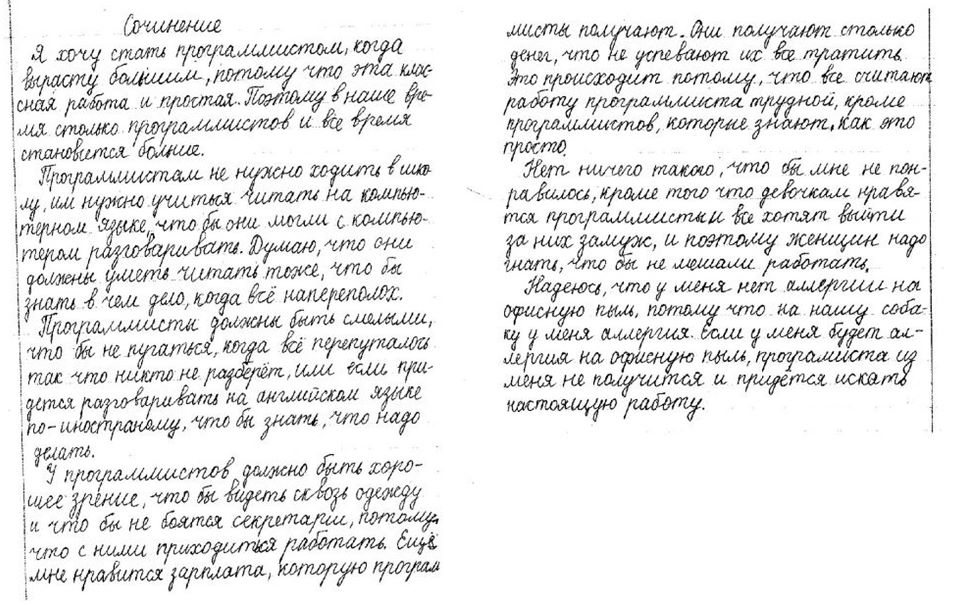 Сочинение
Я хочу стать программистом, когда
вырасту большим, потому что эта клас-
сная работа и простая. Поэтому в наше вре-
мя столько программистов и все время
становиется болние.
Программистам не нужно ходить в шко-
лу, им нужно учиться читать на компью-
терном языке, что бы они могли с компью-
тером разговаривать. Думаю, что они
должны уметь читать тоже, что бы
знать в чем дело, когда всё напереполох.
Программисты должны быть смелыми,
что бы не пугаться, когда всё перепуталось
так что никто не разберёт, или если при-
дется разговаривать на английском языке
по-иностраному, что бы знать, что надо
делать.
У программистов должно быть хоро-
шее зрение, что бы видеть сквозь одежду
и что бы не боятся секретарш, потому,
что с ними приходиться работать. Ещё
мне нравится зарплата, которую програм
мисты получают. Они получают столько
денег, что не успевают их все тратить.
Это происходит потому, что все считают
работу программиста трудной, кроме
программистов, которые знают, как это
просто.
Нет ничего такого, что бы мне не пон-
равилось, кроме того что девочкам нравя-
тся программисты и все хотят выйти
за них замуж, и поэтому женщин надо
гнать, что бы не мешали работать.
Надеюсь, что у меня нет аллергии на
офисную пыль, потому что на нашу соба-
ку у меня аллергия. Если у меня будет ал-
лергия на офисную пыль, програмиста из
меня не получится и придётся искать
настоящую работу.